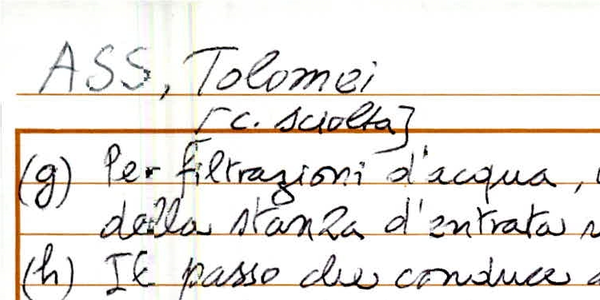 ASS, Tolomei
[c. sciolta]
(g) Per filtrazioni d'acqua,
della stanza d'entrata
(h) Il passo che conduce